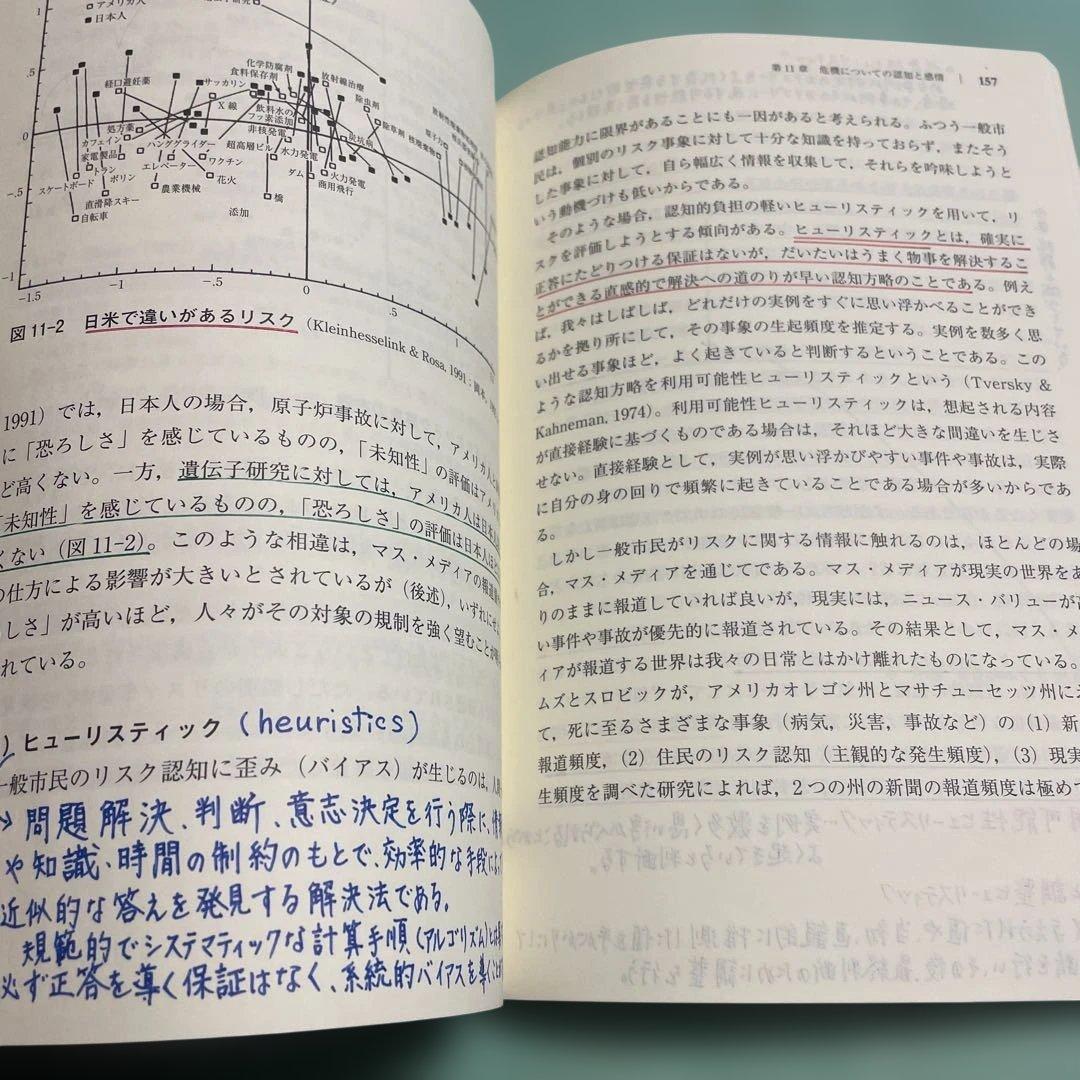 アメリカ人
日本人
1
.5
0
-.5
-1
-1.5
-1
-.5
0
.5
経口避妊薬
サッカリン
化学防腐剤
食料保存剤
放射線治療
除虫剤
X線
飲料水の
フッ素添加
処方薬
カフェイン
ハンググライダー
非核発電
除草剤
炭坑病
家電製品
超高層ビル
水力発電
トラン
エレベーター
ワクチン
ダム
火力発電
スケートボード
ボリン
花火
商用飛行
直滑降スキー
農業機械
橋
自転車
添加
図11-2 日米で違いがあるリスク(Kleinhesselink & Rosa, 1991;
1991)では,日本人の場合,原子炉事故に対して,アメリカ人
に「恐ろしさ」を感じているものの,「未知性」の評価はアメ
ど高くない。一方,遺伝子研究に対しては,アメリカ人は日本
「未知性」を感じているものの,「恐ろしさ」の評価は日本人ほど
くない(図11-2)。このような相違は,マス・メディアの報道
の仕方による影響が大きいとされているが(後述),いずれにせ
しさ」が高いほど,人々がその対象の規制を強く望むことが
れている。
) ヒューリスティック(heuristics)
一般市民のリスク認知に歪み(バイアス)が生じるのは,人
→問題解決、判断、意志決定を行う際に、
や知識、時間の制約のもとで、効率的な手段
近似的な答えを発見する解決法である。
規範的でシステマティックな計算手順(アルゴリズム)
必ず正答を導く保証はなく、系統的バイアスを導く
第11章 危機についての認知と感情 | 157
認知能力に限界があることにも一因があると考えられる。ふつう一般市
民は,個別のリスク事象に対して十分な知識を持っておらず,またそう
した事象に対して,自ら幅広く情報を収集して,それらを吟味しようと
いう動機づけも低いからである。
そのような場合,認知的負担の軽いヒューリスティックを用いて,リ
スクを評価しようとする傾向がある。ヒューリスティックとは,確実に
正答にたどりつける保証はないが,だいたいはうまく物事を解決するこ
とができる直感的で解決への道のりが早い認知方略のことである。例え
ば,我々はしばしば,どれだけの実例をすぐに思い浮かべることができ
るかを拠り所にして,その事象の生起頻度を推定する。実例を数多く思
い出せる事象ほど,よく起きていると判断するということである。この
ような認知方略を利用可能性ヒューリスティックという(Tversky &
Kahneman, 1974)。利用可能性ヒューリスティックは,想起される内容
が直接経験に基づくものである場合は,それほど大きな間違いを生じさ
せない。直接経験として,実例が思い浮かびやすい事件や事故は,実際
に自分の身の回りで頻繁に起きていることである場合が多いからであ
る。
しかし一般市民がリスクに関する情報に触れるのは,ほとんどの場
合,マス・メディアを通じてである。マス・メディアが現実の世界をあ
りのままに報道していれば良いが,現実には,ニュース・バリューが
い事件や事故が優先的に報道されている。その結果として,マス・メ
ィアが報道する世界は我々の日常とはかけ離れたものになっている。
ムズとスロビックが,アメリカオレゴン州とマサチューセッツ州に
て,死に至るさまざまな事象(病気,災害,事故など)の(1)新
報道頻度,(2)住民のリスク認知(主観的な発生頻度),(3)現実
生頻度を調べた研究によれば,2つの州の新聞の報道頻度は極めて